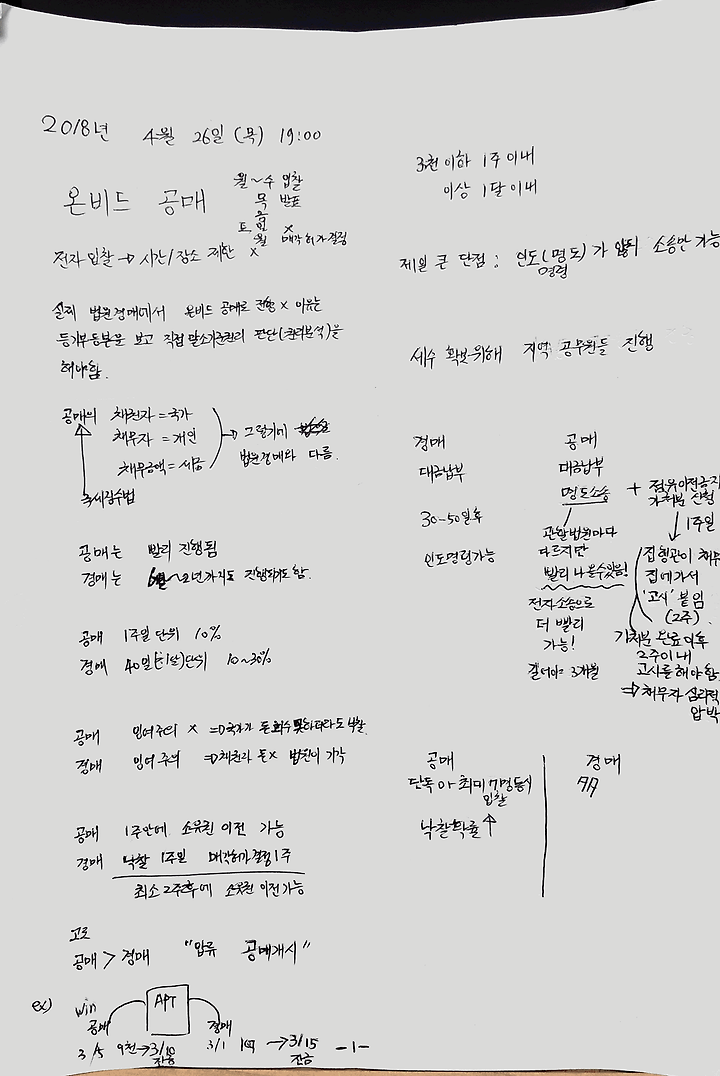 2018년 4월 26일 (목) 19:00
온비드 공매
월~수 입찰
목 발표
금
토 일 x
월 매각허가결정
전자입찰 → 시간/장소 제한 x
실제 법원경매에서 온비드 공매로 전향 x 이유는
등기부등본을 보고 직접 말소기준권리 판단(권리분석)을
해야함.
공매의 채권자 = 국가
채무자 = 개인
채무금액 = 세금
→ 그렇기에
법원경매와 다름.
국세징수법
공매는 빨리 진행됨
경매는 6월~2년까지도 진행되기도 함.
공매 1주일 단위 10%
경매 40일(한달)단위 10~30%
공매 잉여주의 x ⇒ 국가가 돈 회수 못하더라도 낙찰
경매 잉여주의 ⇒ 채권자 돈x 법원이 기각
공매 1주안에 소유권 이전 가능
경매 낙찰 1주일 매각허가결정 1주
최소 2주후에 소유권 이전가능
고로
공매 > 경매 "압류 공매개시"
ex) win
APT
공매 경매
3/5 9천 → 3/10 3/1 1억 → 3/15
잔금 잔금
-1-
3천이하 1주이내
이상 1달이내
제일 큰 단점 : 인도(명도)가 소송만 가능
명령
세수 확보 위해 지역 공무원들 진행
경매 공매
대금납부 대금납부
명도소송 + 점유이전금지
가처분 신청
30-50일후
인도명령가능
관할법원마다
다르지만
빨리 나올수있음!
전자소송으로
더 빨리
가능!
길어야 3개월
↓ 1주일
집행관이 채무
집에가서
'고시' 붙임
(2주).
가처분 완료이후
2주이내
고시를 해야함
⇒ 채무자 심리적
압박
공매 경매
단독 or 최대 7명 동시
입찰
낙찰확률 ↑